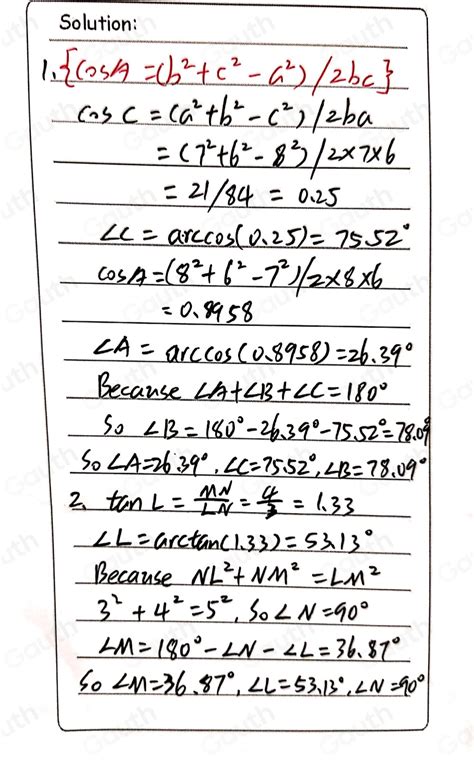 Solution:
1. {cosA = (b² + c² - a²) / 2bc}
cos C = (a² + b² - c²) / 2ba
= (7² + 6² - 8²) / 2×7×6
= 21/84 = 0.25
∠C = arccos(0.25) = 75.52°
cosA = (8² + 6² - 7²) / 2×8×6
= 0.8958
∠A = arccos(0.8958) = 26.39°
Because ∠A + ∠B + ∠C = 180°
So ∠B = 180° - 26.39° - 75.52° = 78.09°
So ∠A = 26.39°, ∠C = 75.52°, ∠B = 78.09°
2. tan L = MN/LN = 4/3 = 1.33
∠L = arctan(1.33) = 53.13°
Because NL² + NM² = LM²
3² + 4² = 5², So ∠N = 90°
∠M = 180° - ∠N - ∠L = 36.87°
So ∠M = 36.87°, ∠L = 53.13°, ∠N = 90°